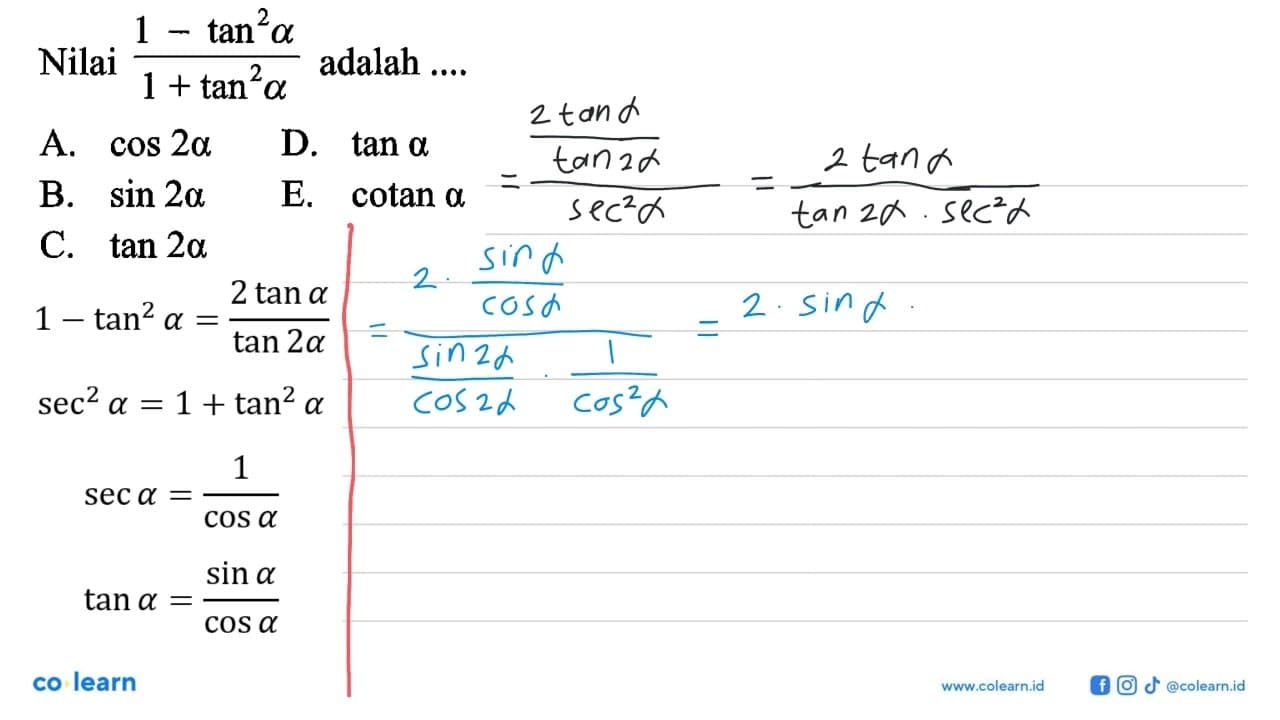 Nilai (1 − tan²α)/(1 + tan²α) adalah ....
A. cos 2α D. tan α
B. sin 2α E. cotan α
C. tan 2α
= (2 tan α / tan 2α) / sec²α = 2 tan α / (tan 2α . sec²α)
1 − tan² α = 2 tan α / tan 2α
sec² α = 1 + tan² α
sec α = 1 / cos α
tan α = sin α / cos α
= (2 . sin α / cos α) / (sin 2α / cos 2α . 1 / cos²α) = 2 . sin α .
co learn
www.colearn.id
@colearn.id